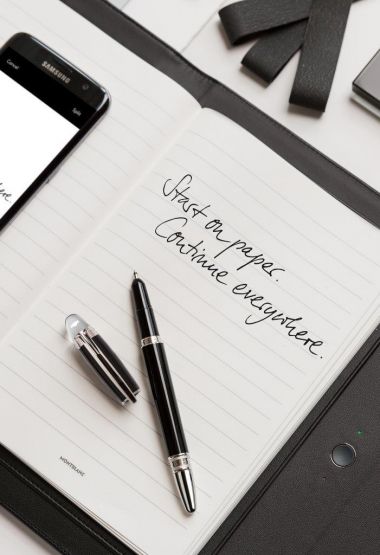 Cancel
SAMSUNG
Split
here
Start on paper.
Continue everywhere.
MONTBLANC